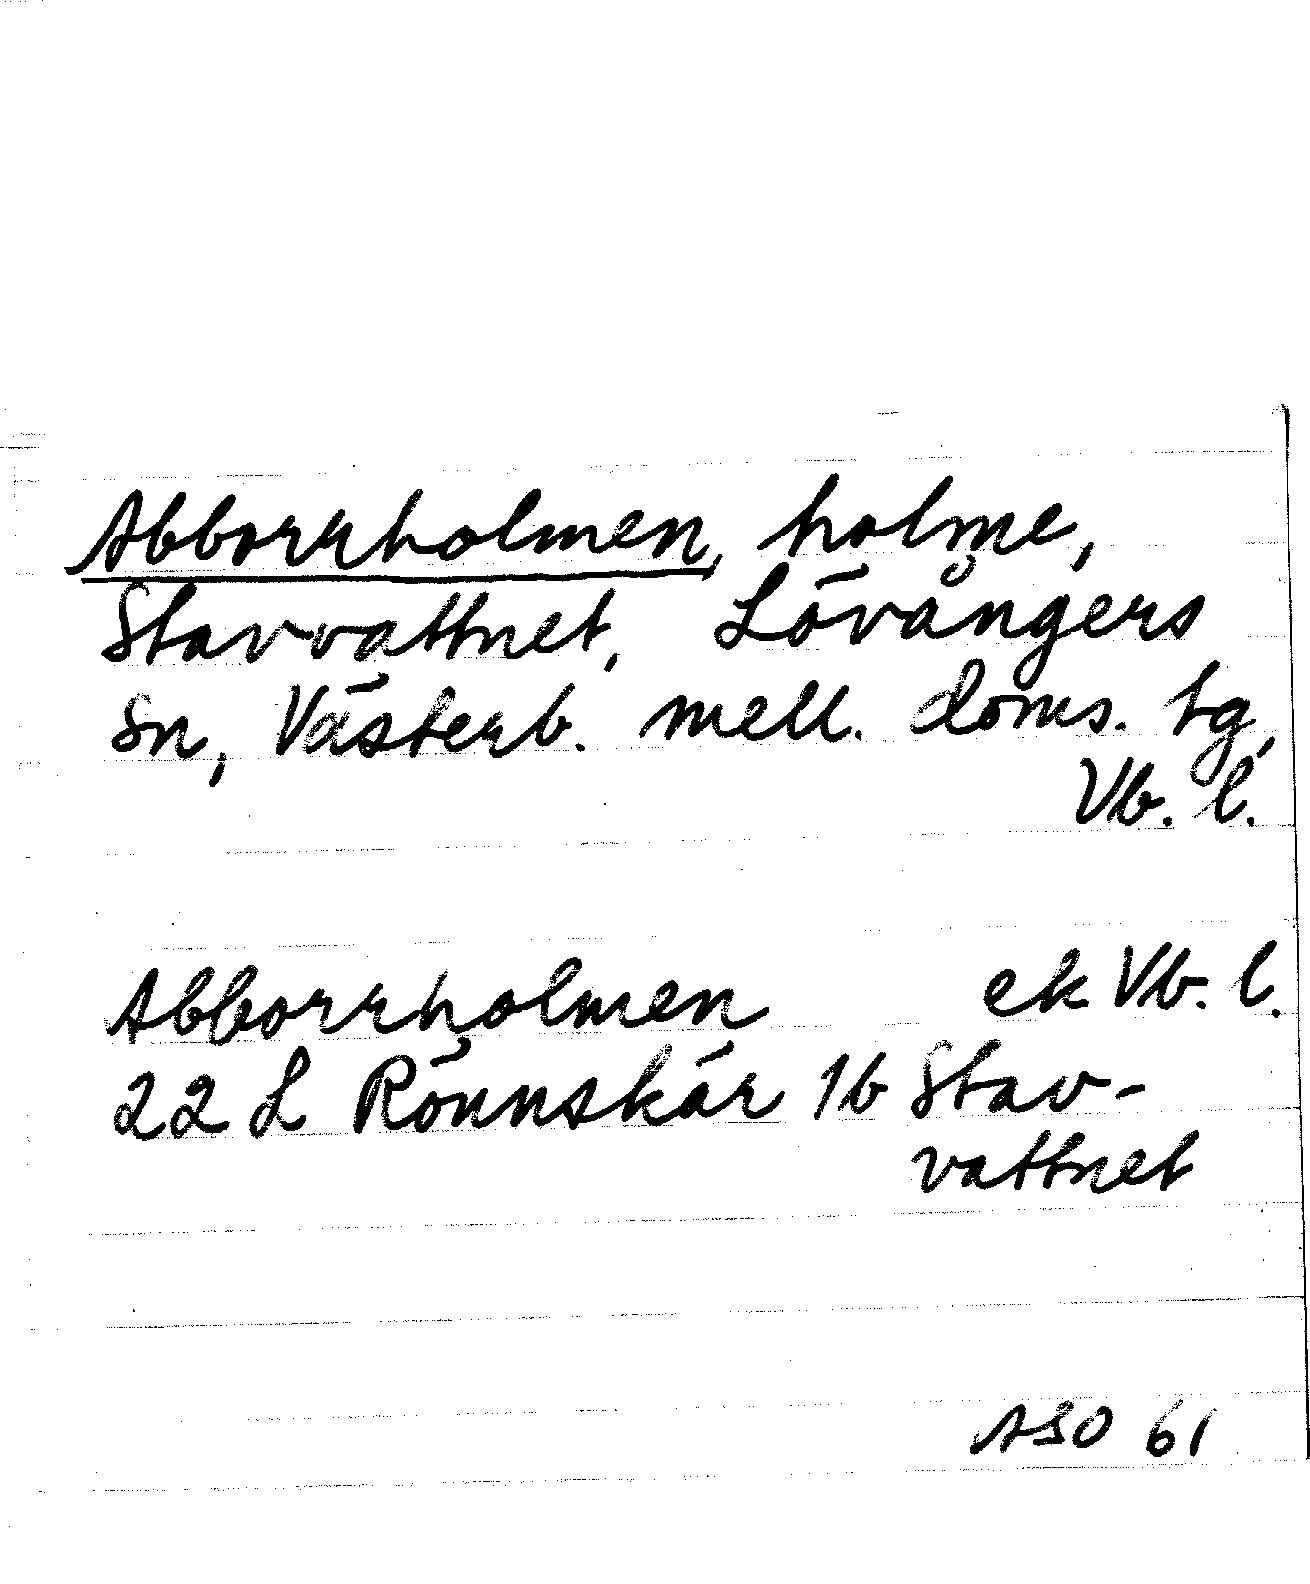 Abborrholmen, holme,
Stavvattnet, Lövångers
sn, Västerb. mell. doms. tg,
Vb. l.
Abborrholmen ek Vb. l.
22 L Rönnskär 1b Stav-
vattnet
ASO 61